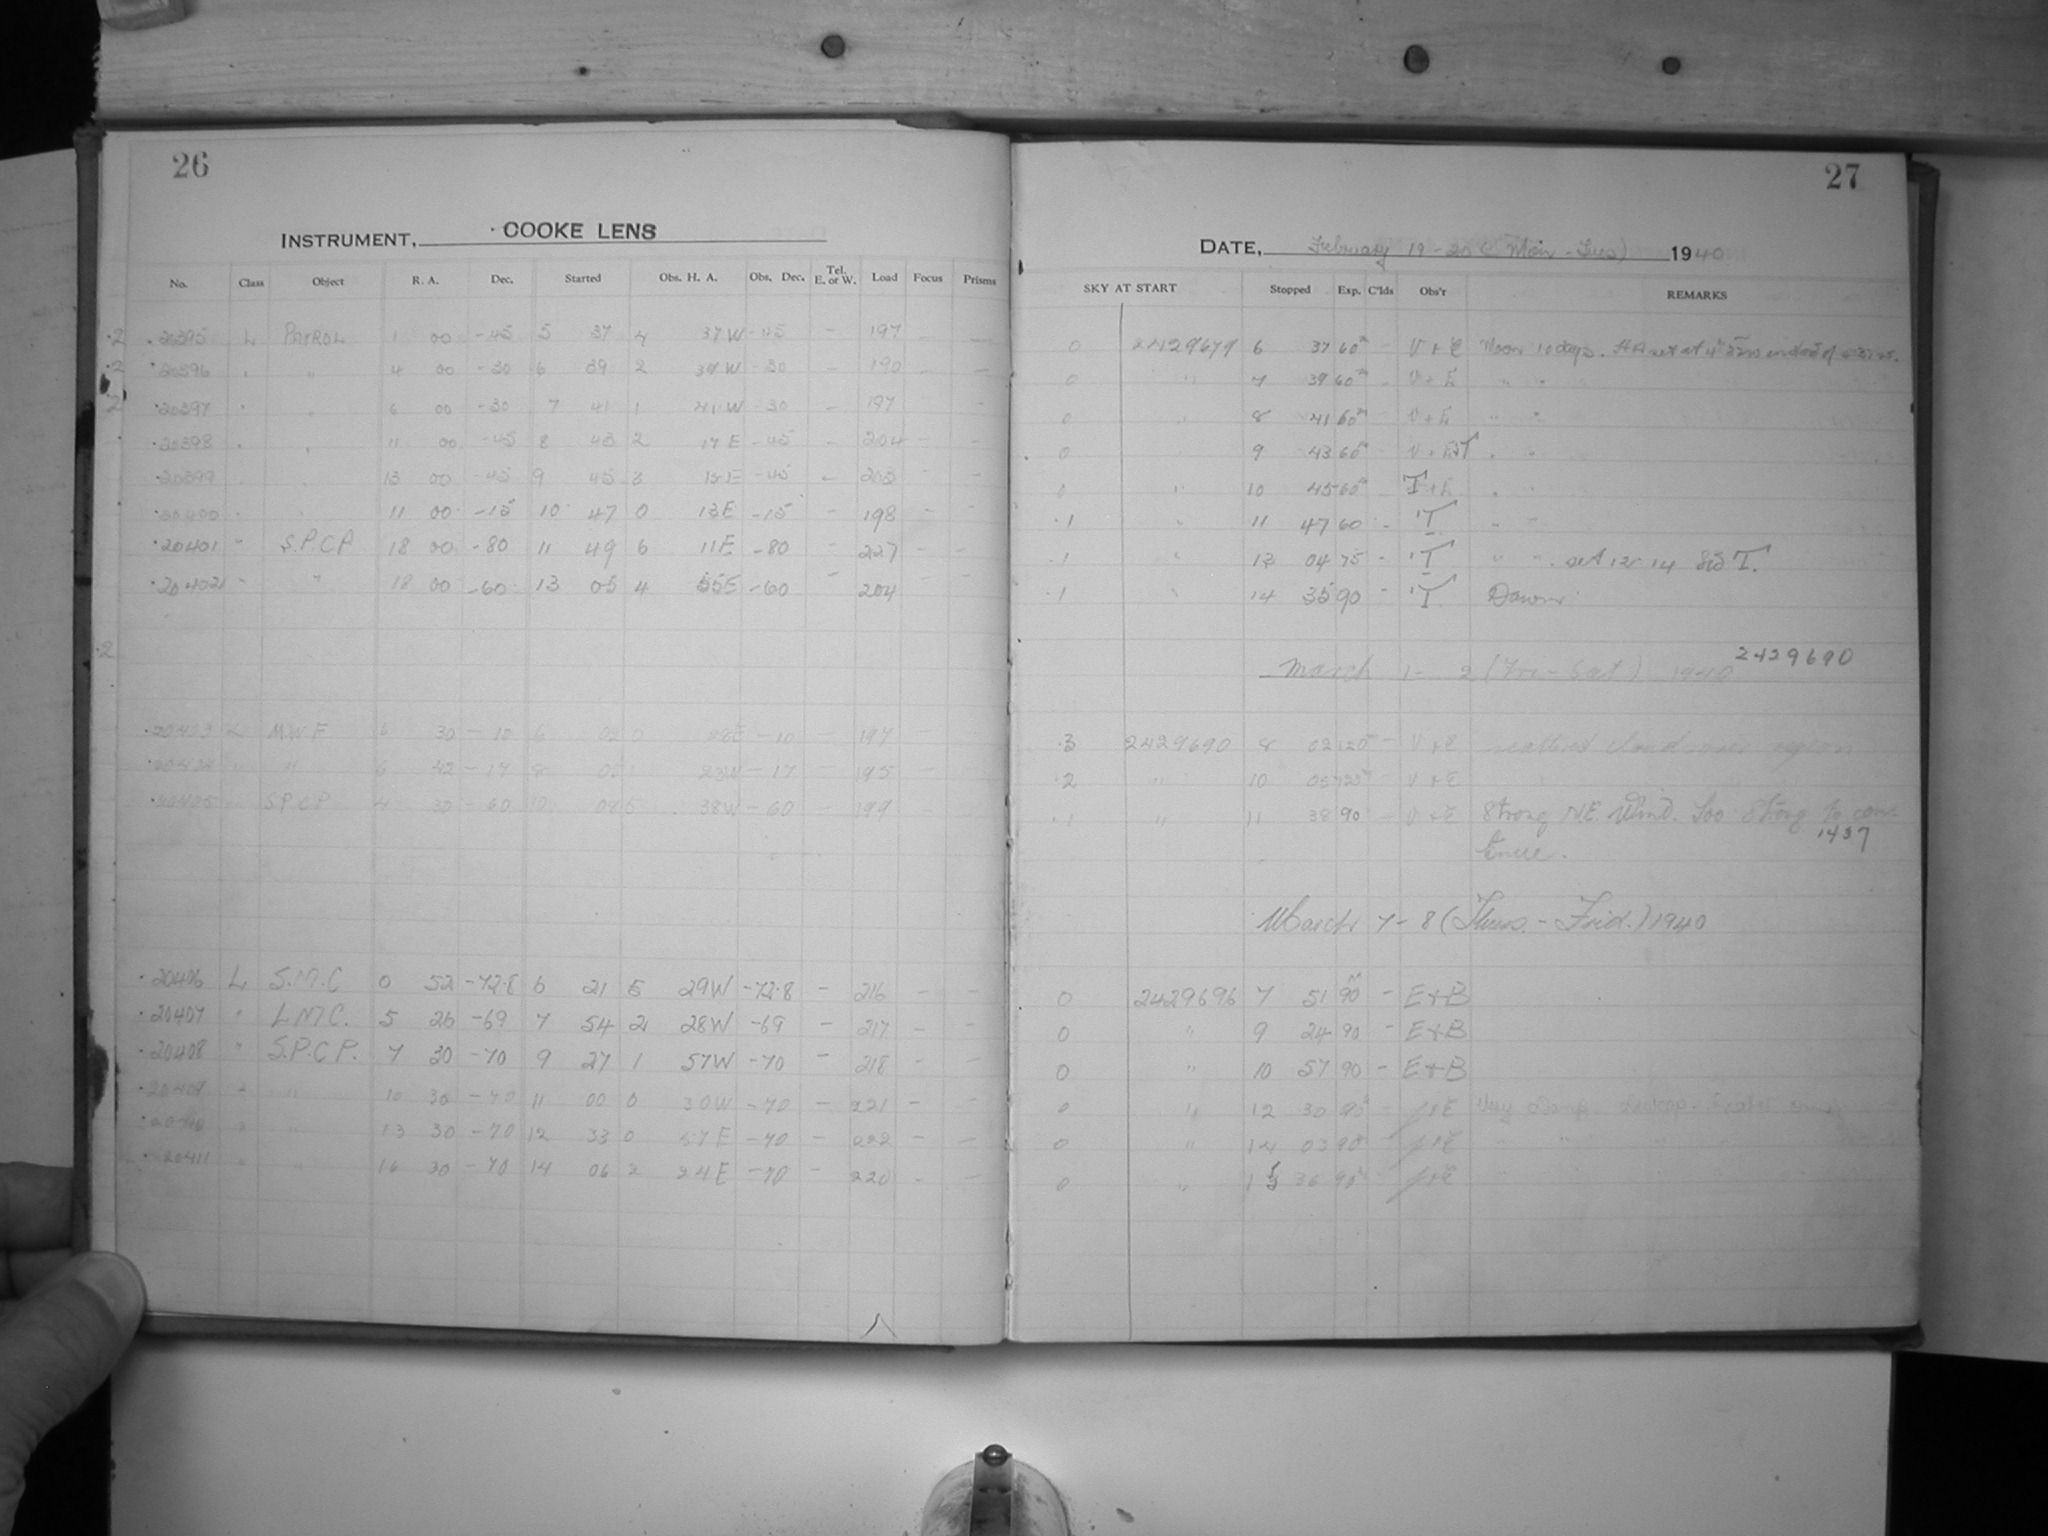 26
INSTRUMENT, COOKE LENS
No. Class Object R. A. Dec. Started Obs. H. A. Obs. Dec. Tel. E. or W. Load Focus Prisms
20395 L PATROL 1 00 -45 5 37 4 37W -45 - 197 - -
20396 " " 4 00 -30 6 39 2 39W -30 - 190 - -
20397 " " 6 00 -30 7 41 1 41W -30 - 197 -
20398 " " 11 00 -45 8 43 2 17E -45 - 204 - -
20399 13 00 -45 9 45 3 15E -45 - 203 - -
20400 11 00 -15 10 47 0 13E -15 - 198 - -
20401 " S.P.C.P 18 00 -80 11 49 6 11E -80 - 227 - -
20402 " " 18 00 -60 13 05 4 55E -60 - 204 - -
20403 L M.W.F 6 30 -10 6 02 0 28E -10 - 197 - -
20404 " " 6 42 -17 8 05 1 23W -17 - 195 - -
20405 S.P.C.P 4 30 -60 10 08 5 38W -60 - 199 - -
20406 L S.M.C 0 52 -72.8 6 21 5 29W -72.8 - 216 - -
20407 " L.M.C. 5 26 -69 7 54 2 28W -69 - 217 - -
20408 " S.P.C.P. 7 30 -70 9 27 1 57W -70 - 218 - -
20409 " " 10 30 -70 11 00 0 30W -70 - 221 - -
20410 " " 13 30 -70 12 33 0 57E -70 - 222 - -
20411 " " 16 30 -70 14 06 2 24E -70 - 220 - -
27
DATE, February 19-20 (Mon - Tues) 1940
SKY AT START Stopped Exp. C'lds Obs'r REMARKS
0 2429679 6 37 60m - V + E Moon 10 days. HA set at
0 " 7 39 60m - V + E " "
0 " 8 41 60m - V + E " "
0 9 43 60m - " "
0 " 10 45 60m - T + E " "
.1 " 11 47 60 - T " "
.1 " 13 04 75 - T " " . set 12 14 T.
.1 " 14 35 90 - T Dawn
March 1 - 2 (Fri - Sat) 1940 2429690
.3 2429690 8 02 120m - V + E scattered cloud over region
.2 " 10 05 120m V + E
.1 " 11 38 90 - V + E Strong NE. Wind. Too strong to con-
tinue. 1437
March 7-8 (Thurs. - Frid.) 1940
0 2429696 7 51 90m - E + B
0 " 9 24 90 - E + B
0 " 10 57 90 - E + B
0 " 12 30 90m - J + E Very damp.
0 " 14 03 90 - J + E " " "
0 " 15 36 90m - J + E